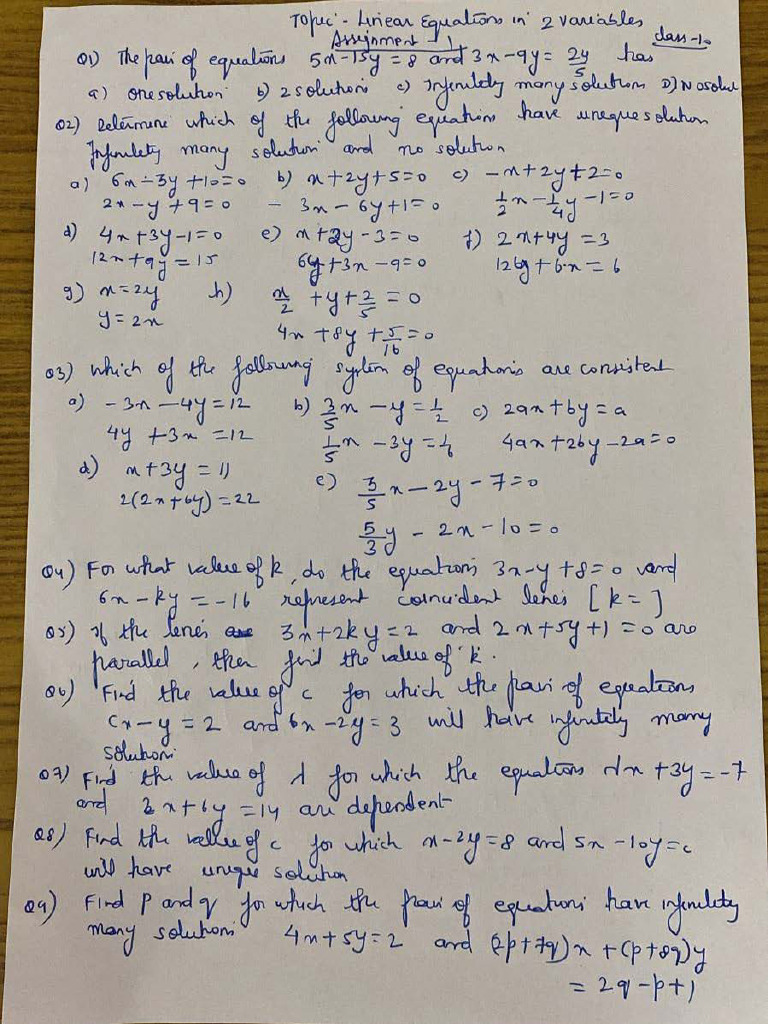 Topic - Linear Equations in 2 variables
Assignment - 1 class-10
Q1) The pair of equations 5x-15y = 8 and 3x-9y = 24/5 has
a) one solution b) 2 solutions c) Infinitely many solutions D) No solu
Q2) Determine which of the following equations have unique solution
Infinitely many solution and no solution
a) 6x-3y+10=0 b) x+2y+5=0 c) -x+2y+2=0
2x-y+9=0 - 3x-6y+1=0 1/2x-1/4y-1=0
d) 4x+3y-1=0 e) x+2y-3=0 f) 2x+4y=3
12x+9y=15 6y+3x-9=0 12y+6x=6
g) x=2y h) x/2+y+2/5=0
y=2x
4x+8y+5/16=0
Q3) Which of the following system of equations are consistent
a) -3x-4y=12 b) 3/5x-y=1/2 c) 2ax+by=a
4y+3x=12 1/5x-3y= 4ax+2by-2a=0
d) x+3y=11 e) 3/5x-2y-7=0
2(2x+6y)=22
5/3y-2x-10=0
Q4) For what value of k, do the equations 3x-y+8=0 and
6x-ky=-16 represent coincident lines [k= ]
Q5) If the lines are 3x+2ky=2 and 2x+5y+1=0 are
parallel, then find the value of 'k'.
Q6) Find the value of c for which the pair of equations
cx-y=2 and 6x-2y=3 will have infinitely many
solutions
Q7) Find the value of λ for which the equations λx+3y=-7
and 2x+6y=14 are dependent
Q8) Find the value of c for which x-2y=8 and 5x-10y=c
will have unique solution
Q9) Find p and q for which the pair of equations have infinitely
many solutions 4x+5y=2 and (2p+7q)x+(p+8q)y
=2q-p+1